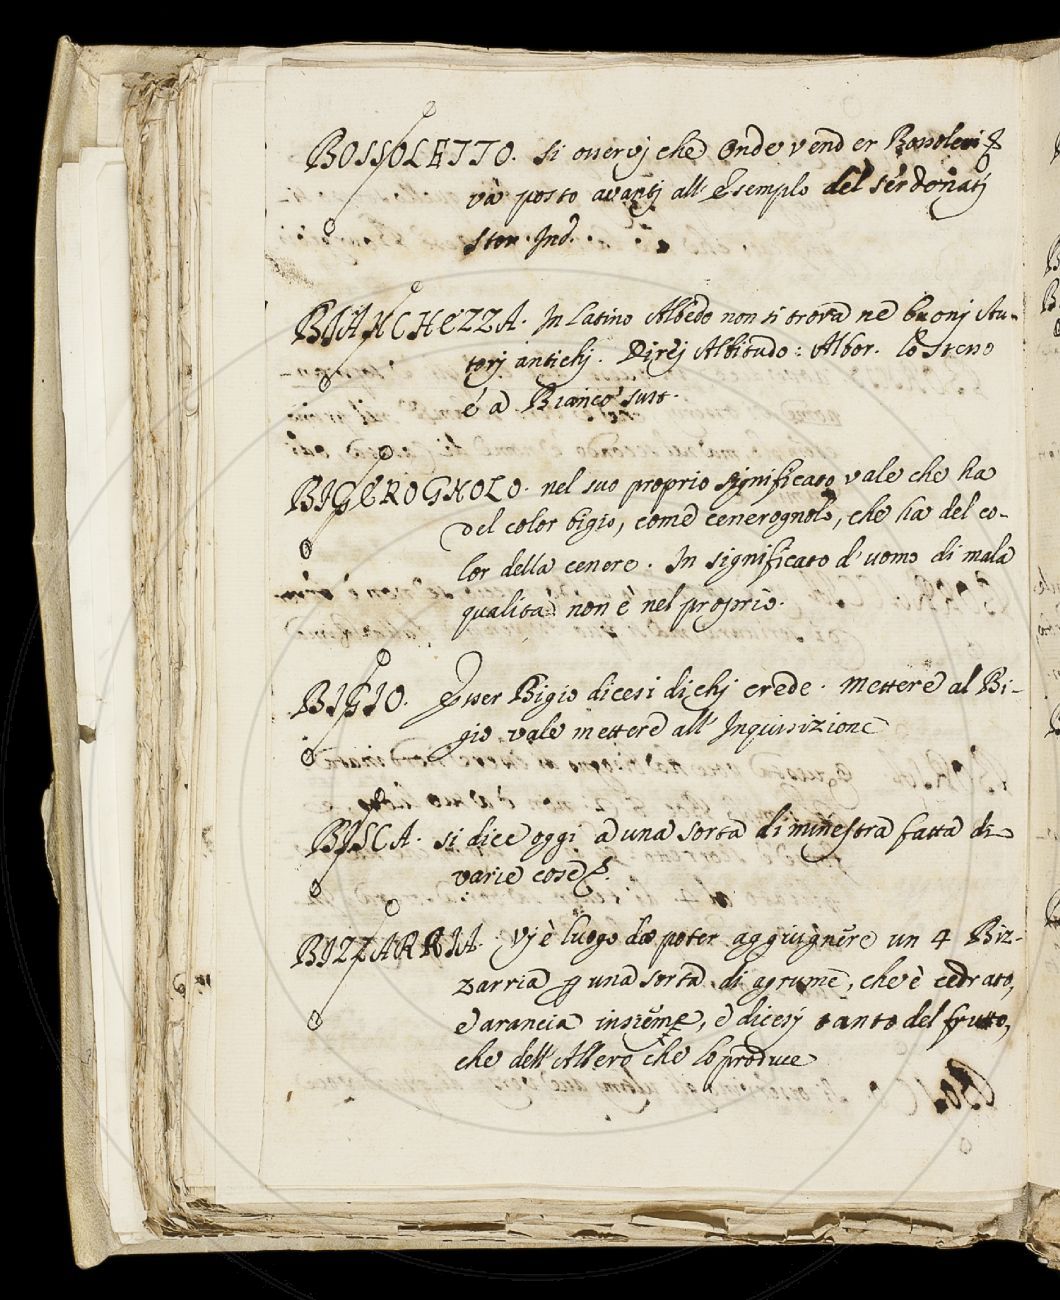 BOSSOLETTO. Si osservj che Onde vend er Bossoleti &
và posto avantj all' Esemplo del serdonatj
Stor. Ind.
BIANCHEZZA. In Latino Albedo non si trova ne buonj Au-
torj antichj. Direj Albitudo: Albor. lo stesso
é a Bianco sust.
BIGEROGNOLO. nel suo proprio significato vale che ha
del color bigio, come cenerognolo, che ha del co-
lor della cenere. In significato d'uomo di mala
qualita non é nel proprio.
BIGIO. Esser Bigio dicesi di chj crede. Mettere al Bi-
gio vale mettere all' Inquisizione
BISCA. si dice oggi a una sorta di minestra fatta di
varie cose
BIZZARRIA. Vj è luogo da poter aggiugnere un 4 Biz-
zarria p una sorta di agrume, che è cedrato,
e arancia insieme, e dicesj tanto del frutto,
che dell' Albero che lo produce